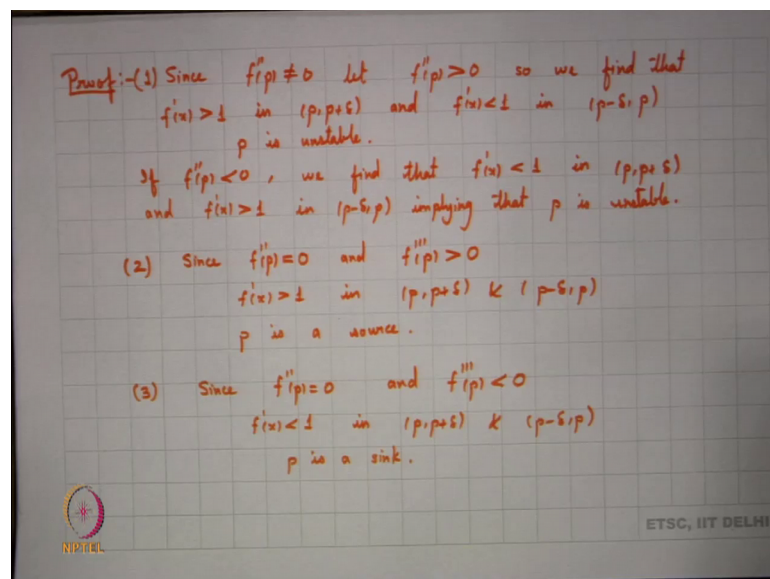 Proof:-(1) Since f''(p) ≠ 0 let f''(p) > 0 so we find that
f'(x) > 1 in (p, p+δ) and f'(x) < 1 in (p-δ, p)
p is unstable.
If f''(p) < 0, we find that f'(x) < 1 in (p, p+δ)
and f'(x) > 1 in (p-δ, p) implying that p is unstable.
(2) Since f''(p) = 0 and f'''(p) > 0
f'(x) > 1 in (p, p+δ) & (p-δ, p)
p is a source.
(3) Since f''(p) = 0 and f'''(p) < 0
f'(x) < 1 in (p, p+δ) & (p-δ, p)
p is a sink.
NPTEL
ETSC, IIT DELHI